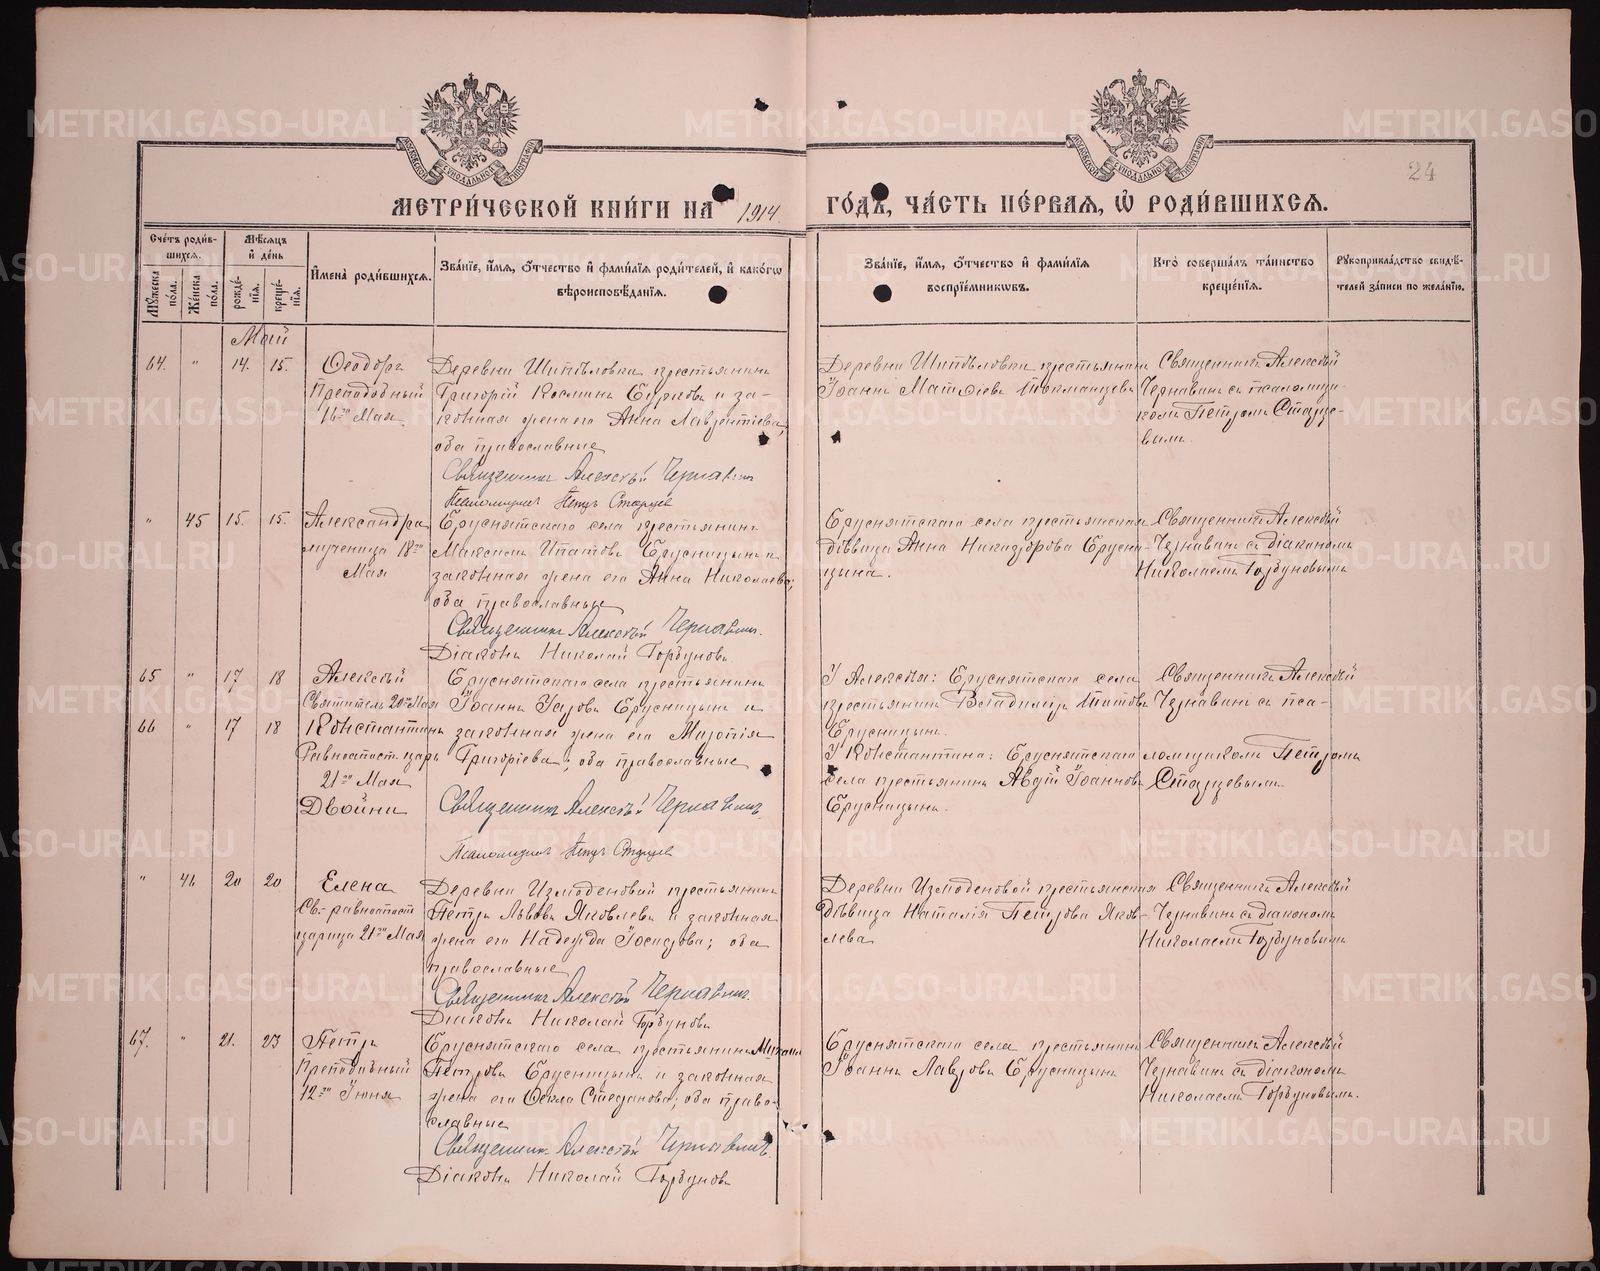 МЕТРИ́ЧЕСКОЙ КНИ́ГИ НА 1914 ГО́ДЪ, ЧА́СТЬ ПЕ́РВАЯ, Ѡ РОДИ́ВШИХСЯ.
24
Сче́тъ роди́вшихся.
Му́жеска по́ла.
Же́нска по́ла.
Мѣ́сяцъ и де́нь
рожде́нія.
креще́нія.
Имена̀ роди́вшихся.
Зва́ніе, и́мя, о́тчество и фами́лія роди́телей, и како́гѡ вѣроисповѣ́данія.
Зва́ніе, и́мя, о́тчество и фами́лія воспріе́мниковъ.
Кто̀ соверша́лъ та́инство креще́нія.
Рукоприкла́дство свидѣ́телей за́писи по жела́нію.
Май
64. " 14. 15.
Ѳеодоръ
Преподобный
16го Мая
Деревни Шипѣловки крестьянинъ
Григорій Козминъ и за-
конная жена его Анна Лаврентіева,
оба православные
Священникъ Алексѣй Чернавинъ
Псаломщикъ Петръ Старцев
Деревни Шипѣловки крестьянинъ
Іоаннъ Матѳіевъ Токманцевъ
Священникъ Алексѣй
Чернавинъ съ псаломщи-
комъ Петромъ Старце-
вымъ.
" 45 15. 15.
Александра
мученица 18го
Мая
Бруснятскаго села крестьянинъ
Максимъ Ипатовъ Брусницынъ и
законная жена его Анна Николаева;
оба православные
Священникъ Алексѣй Чернавинъ.
Діаконъ Николай Горбуновъ.
Бруснятскаго села крестьянская
дѣвица Анна Никифорова Брусни-
цына.
Священникъ Алексѣй
Чернавинъ съ діакономъ
Николаемъ Горбуновымъ
65 " 17 18
Алексѣй
Святитель 20го Мая
66 " 17 18
Константинъ
Равноапост. царь
21го Мая
Двойни
Бруснятскаго села крестьянинъ
Іоаннъ Брусницынъ и
законная жена его
Григоріева; оба православные
Священникъ Алексѣй Чернавинъ.
Псаломщикъ Петръ Старцев
У Алексѣя: Бруснятскаго села
крестьянинъ Владимиръ Ипатовъ
Брусницынъ.
У Константина: Бруснятскаго
села крестьянинъ Авдій Іоанновъ
Брусницынъ.
Священникъ Алексѣй
Чернавинъ съ пса-
ломщикомъ Петромъ
Старцевымъ.
" 46 20 20
Елена
Св. равноапост.
царица 21го Мая
Деревни Измоденовой крестьянинъ
Петръ Львовъ Яковлевъ и законная
жена его Надежда Іосифова; оба
православные
Священникъ Алексѣй Чернавинъ.
Діаконъ Николай Горбуновъ
Деревни Измоденовой крестьянская
дѣвица Наталія Петрова Яков-
лева
Священникъ Алексѣй
Чернавинъ съ діакономъ
Николаемъ Горбуновымъ
67. " 21. 23
Петръ
Преподобный
12го Іюня
Бруснятскаго села крестьянинъ Михаилъ
Петровъ Брусницынъ и законная
жена его Ѳекла Стефанова; оба право-
славные
Священникъ Алексѣй Чернавинъ.
Діаконъ Николай Горбуновъ
Бруснятскаго села крестьянинъ
Іоаннъ Лавровъ Брусницынъ
Священникъ Алексѣй
Чернавинъ съ діакономъ
Николаемъ Горбуновымъ.
METRIKI.GASO-URAL.RU